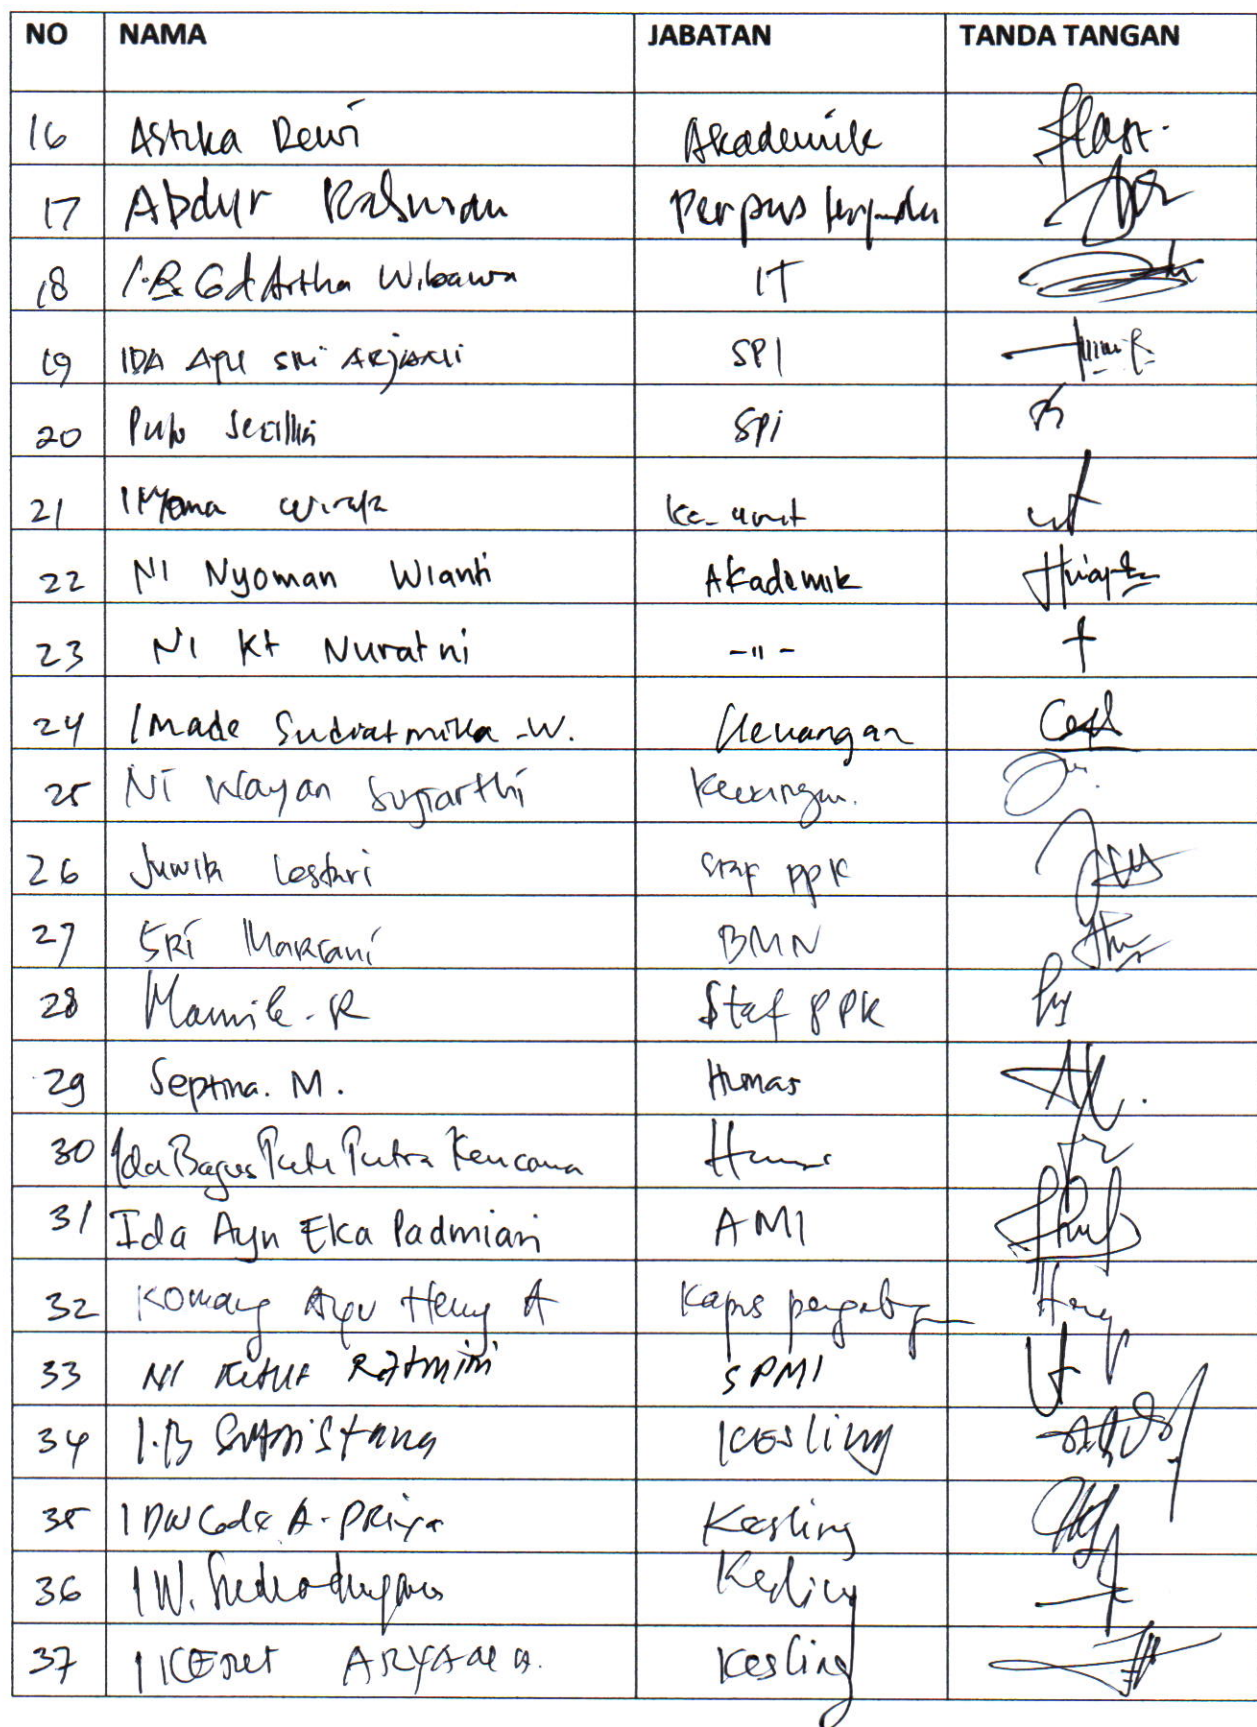 NO NAMA JABATAN TANDA TANGAN
16 Astika Dewi Akademik
17 Abdur Rahman Perpus terpadu
18 I.B Gd Artha Wibawa IT
19 IDA AYU SRI ARJANI SPI
20 Putu SPI
21 I Nyoman Ka_unit
22 NI Nyoman Wianti Akademik
23 NI Kt Nuratni -"-
24 I Made Sudiatmika -W. Keuangan
25 NI Wayan Sugiarthi Keuangan.
26 Juwita Lestari Staf PPK
27 SRI BMN
28 Staf PPK
29 Septina. M. Humas
30 Ida Bagus Putu Putra Kencana Humas
31 Ida Ayu Eka Padmiari AMI
32 Komang Ayu Heny A Kapus
33 NI Ketut Ratmini SPMI
34 I.B Kesling
35 Kesling
36 I W. Kesling
37 I KETUT Kesling